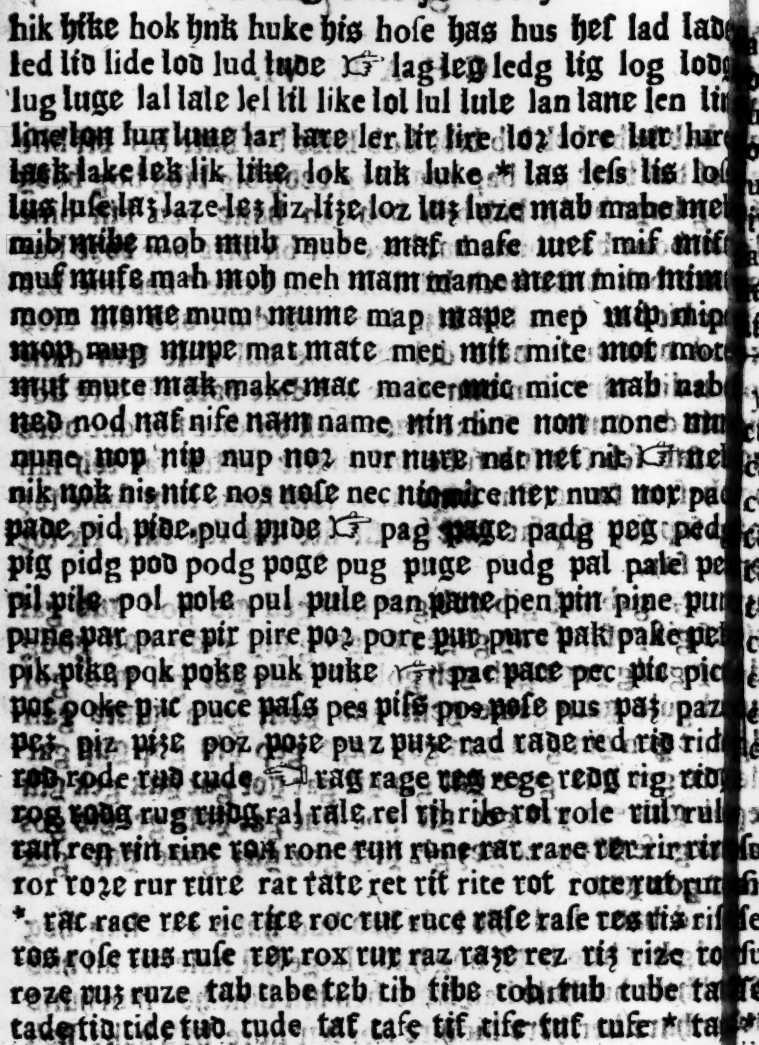 hik hike hok huk huke his hoſe has hus heſ lad lade
led lid lide lod lud lude ☞ lag leg ledg lig log lodg
lug luge lal lale lel lil like lol lul lule lan lane len lin
line lon lun lune lar lare ler lir lire loꝛ lore lur lure
lack lake lek lik like lok luk luke * las leſs lis loſ
lus luſe laz laze lez liz lize loz luz luze mab mabe meb
mib mibe mob mub mube maf mafe mef mif mife
muf mufe mah moh meh mam mame mem mim mime
mom mome mum mume map mape mep mip mipe
mop mup mupe mat mate met mit mite mot mote
mut mute mak make mac mace mic mice nab nabe
ned nod naf nife nam name nin nine non none nun
nune nop nip nup noꝛ nur nure nat net nit ☞ nek
nik nok nis nice nos noſe nec nice nex nux nox pad
pade pid pide pud pude ☞ pag page padg peg pedg
pig pidg pod podg poge pug puge pudg pal pale pel
pil pile pol pole pul pule pan pane pen pin pine pun
pune par pare pir pire poꝛ pore pur pure pak pake pek
pik pike pok poke puk puke ☞ pac pace pec pic pice
poc puc puce paſs pes piſs pos poſe pus paz paze
pez piz pize poz poze puz puze rad rade red rid ride
rod rode rud rude ☜ rag rage reg rege redg rig ridg
rog rodg rug rudg ral rale rel ril rile rol role rul rule
ran ren rin rine ron rone run rune rar rare rer rir rire
ror roꝛe rur rure rat rate ret rit rite rot rote rut rute
* rac race rec ric rice roc ruc ruce raſe raſe res ris riſe
ros roſe rus ruſe rex rox rux raz raze rez riz rize roz
roze ruz ruze tab tabe teb tib tibe tob tub tube tad
tade tid tide tud tude taf tafe tif tife tuf tufe * tag